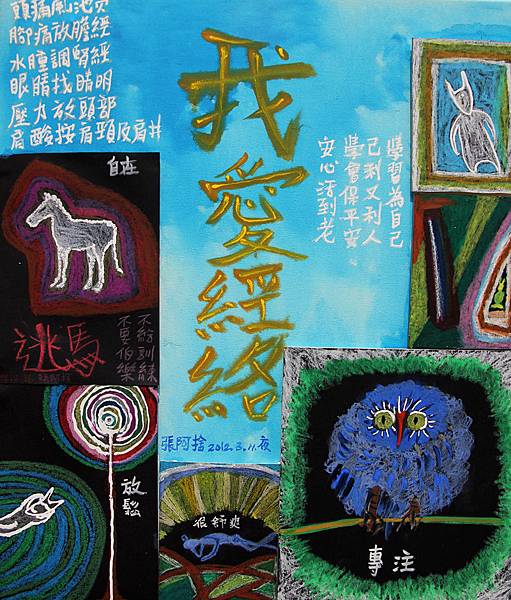 頭痛風池穴
腳痛放膽經
水腫調腎經
眼睛找睛明
壓力放頭部
肩酸按肩頸及肩井
我愛經絡
學習為自己
己利又利人
學會保平安
安心活到老
自在
逃馬
不給訓練
不要伯樂
放鬆
張阿捨 2012.3.11.夜
很舒爽
專注